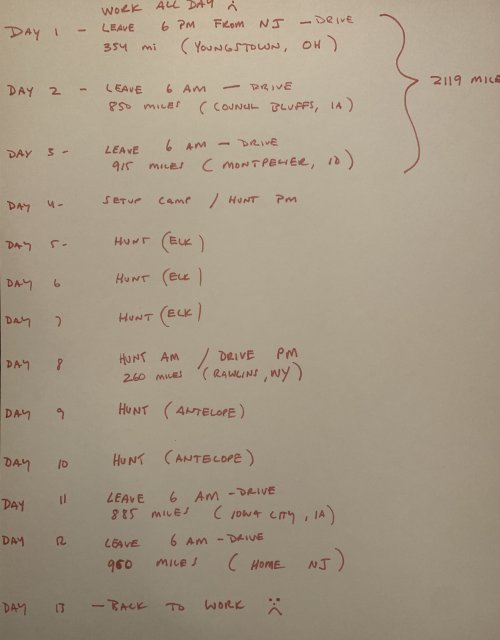 WORK ALL DAY
DAY 1 - LEAVE 6 PM FROM NJ - DRIVE
354 mi (YOUNGSTOWN, OH)
2119 MILE
DAY 2 - LEAVE 6 AM - DRIVE
850 MILES (COUNCIL BLUFFS, IA)
DAY 3 - LEAVE 6 AM - DRIVE
915 MILES (MONTPELIER, ID)
DAY 4 - SETUP CAMP / HUNT PM
DAY 5 - HUNT (ELK)
DAY 6 HUNT (ELK)
DAY 7 HUNT (ELK)
DAY 8 HUNT AM / DRIVE PM
260 MILES (RAWLINS, WY)
DAY 9 HUNT (ANTELOPE)
DAY 10 HUNT (ANTELOPE)
DAY 11 LEAVE 6 AM - DRIVE
885 MILES (IOWA CITY, IA)
DAY 12 LEAVE 6 AM - DRIVE
960 MILES (HOME NJ)
DAY 13 - BACK TO WORK